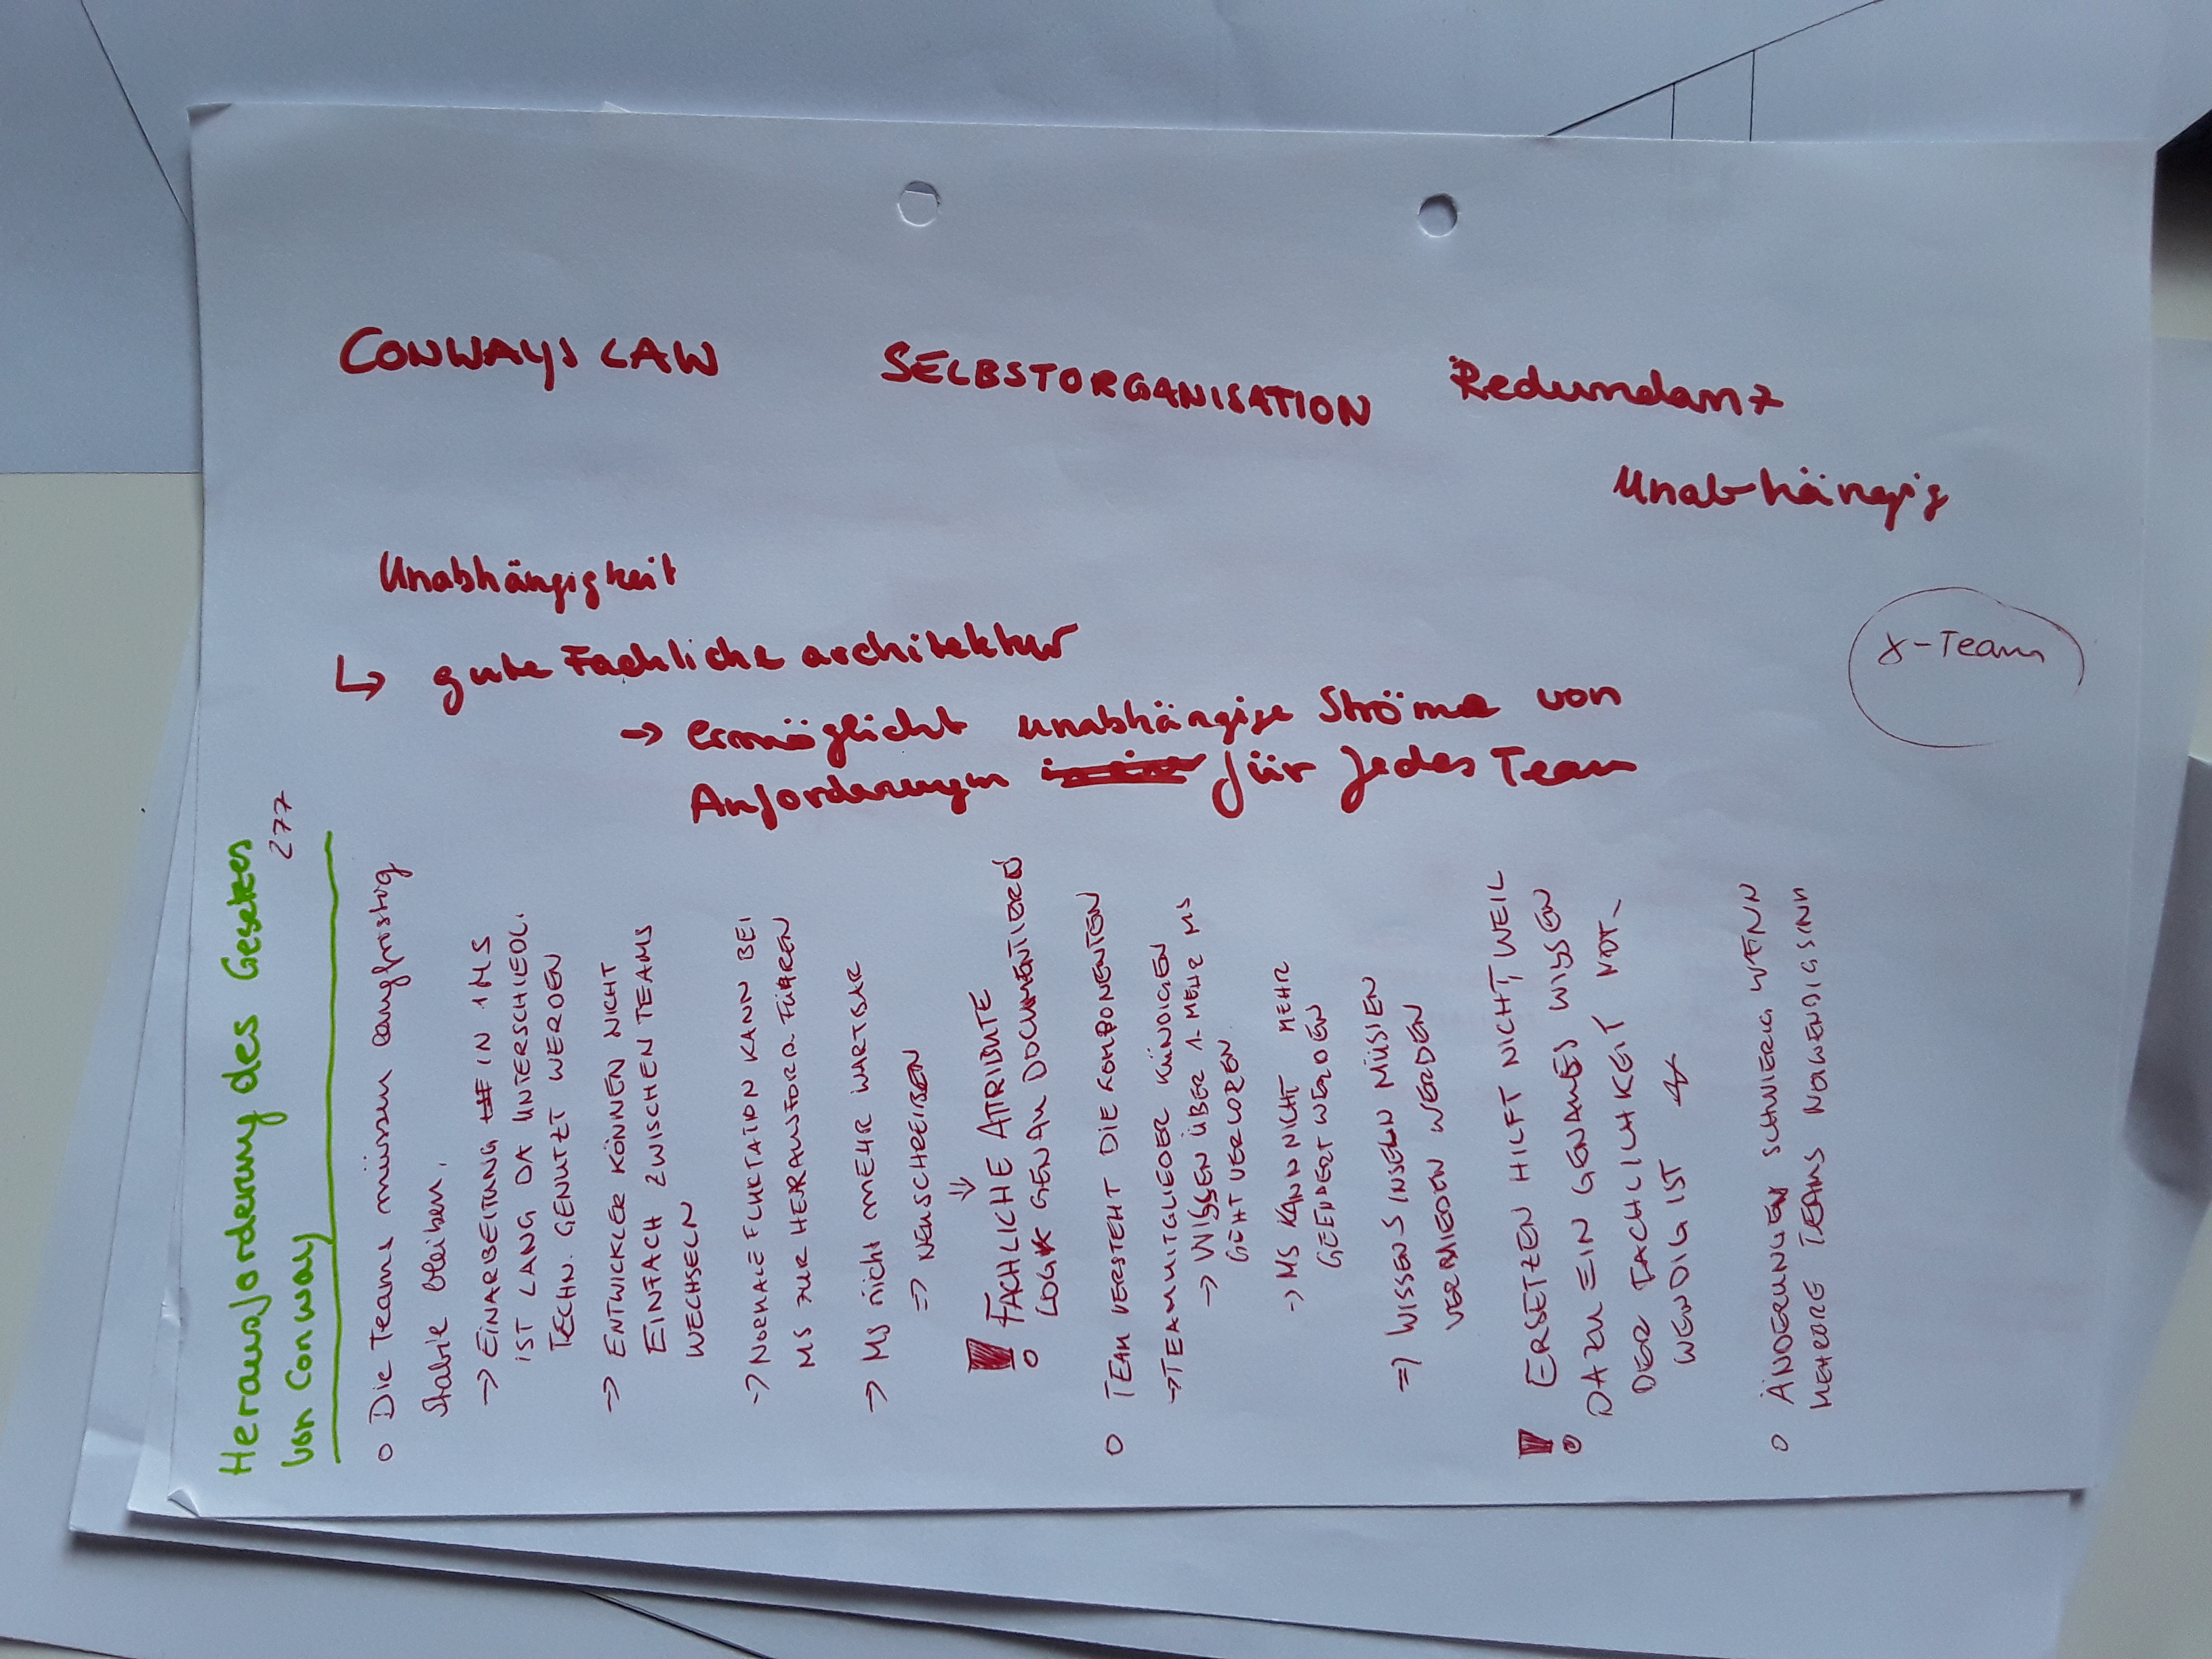 Herausforderung des Gesetzes
von Conway
277
o Die Teams müssen langfristig
stabil bleiben.
-> EINARBEITUNG IN 1 MS
IST LANG DA UNTERSCHIEDL.
TECHN. GENUTZT WERDEN
-> ENTWICKLER KÖNNEN NICHT
EINFACH ZWISCHEN TEAMS
WECHSELN
-> NORMALE FLUKTATION KANN BEI
MS ZUR HERAUSFORD. FÜHREN
-> MS nicht MEHR WARTBAR
=> NEUSCHREIBEN
⇓
! FACHLICHE ATTRIBUTE
LOGIK GENAU DOCUMENTIEREN
o TEAM VERSTEHT DIE KOMPONENTEN
-> TEAMMITGLIEDER KÜNDIGEN
-> WISSEN ÜBER 1-MEHR MS
GEHT VERLOREN
-> MS KANN NICHT MEHR
GEENDERT WERDEN
=> WISSENSINSELN MÜSSEN
VERMIEDEN WERDEN
! ERSETZEN HILFT NICHT, WEIL
DAZU EIN GENAUES WISSEN
DER FACHLICHKEIT NOT-
WENDIG IST
o ÄNDERUNGEN SCHWIERIG WENN
MEHRERE TEAMS NOWENDIG SIND
CONWAYS LAW SELBSTORGANISATION Redundanz
Unabhängig
Unabhängigkeit
↳ gute Fachliche architektur
-> Ermöglicht unabhängige Ströme von
Anforderungen für jedes Team
X-Team